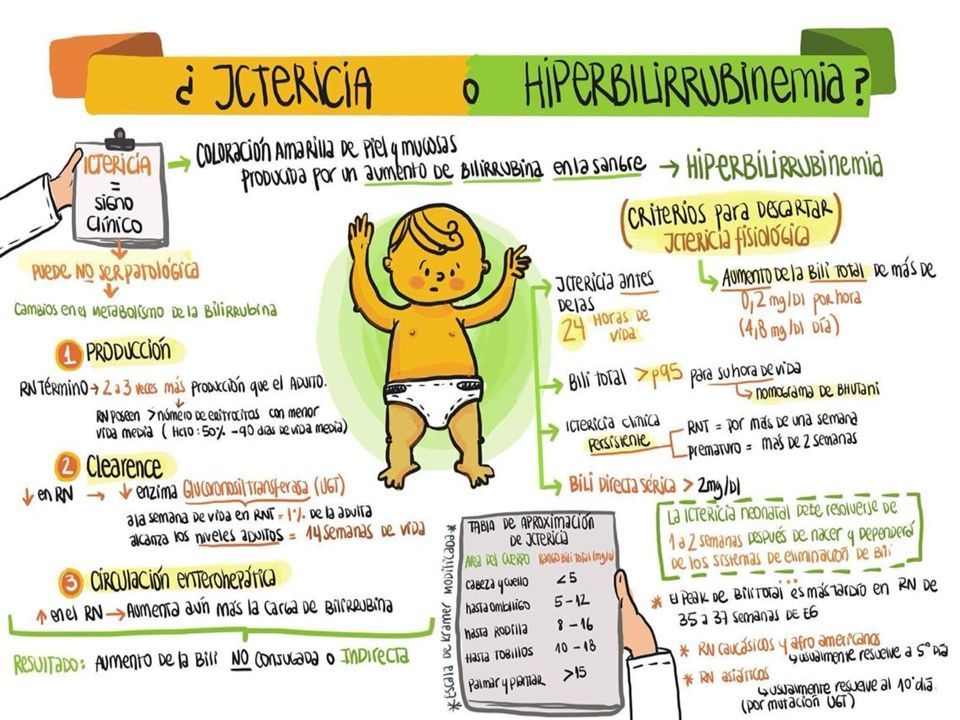 ¿ ICTERICIA o HIPERBILIRRUBINEMIA?
ICTERICIA
=
SIGNO
CLÍNICO
→ COLORACIÓN AMARILLA DE PIEL y MUCOSAS
PRODUCIDA POR UN AUMENTO DE BILIRRUBINA EN LA SANGRE → HIPERBILIRRUBINEMIA
PUEDE NO SER PATOLÓGICA
CAMBIOS EN EL METABOLISMO DE LA BILIRRUBINA
1 PRODUCCIÓN
RN TÉRMINO → 2 a 3 VECES MÁS PRODUCCIÓN QUE EL ADULTO.
RN POSEEN > NÚMERO DE ERITROCITOS CON MENOR
VIDA MEDIA ( HCTO : 50% - 90 DIAS DE VIDA MEDIA)
2 Clearence
↓ en RN → ↓ enzima Glucoronosil transferasa (UGT)
a la semana de vida en RNT = 1% de la adulta
alcanza los niveles adultos = 14 semanas de vida
3 CIRCULACIÓN ENTEROHEPÁTICA
↑ en el RN → AUMENTA AÚN MÁS LA CARGA DE BILIRRUBINA
RESULTADO: AUMENTO DE LA BILI NO CONJUGADA o INDIRECTA
(CRITERIOS PARA DESCARTAR
ICTERICIA FISIOLÓGICA)
ICTERICIA ANTES
DE LAS
24 HORAS DE
VIDA
AUMENTO DE LA BILI TOTAL DE MÁS DE
0,2 mg/Dl POR HORA
(4,8 mg/Dl DÍA)
BILI TOTAL >P95 PARA SU HORA DE VIDA
↳ NOMOGRAMA DE BHUTANI
ICTERICIA CLÍNICA
PERSISTENTE
RNT = POR MÁS DE UNA SEMANA
PREMATURO = MÁS DE 2 SEMANAS
BILI DIRECTA SÉRICA > 2mg/Dl
*Escala de Kramer modificada*
TABLA DE APROXIMACIÓN
DE ICTERICIA
ÁREA DEL CUERPO RANGO BILI TOTAL (mg/dl)
CABEZA y CUELLO <5
HASTA OMBLIGO 5 - 12
HASTA RODILLA 8 - 16
HASTA TOBILLOS 10 - 18
PALMAR y PLANTAR >15
LA ICTERICIA NEONATAL DEBE RESOLVERSE DE
1 a 2 SEMANAS DESPUÉS DE NACER y DEPENDERÁ
DE LOS SISTEMAS DE ELIMINACIÓN DE BILI
* El PEAK DE BILI TOTAL ES MÁS TARDÍO EN RN DE
35 a 37 SEMANAS DE EG
* RN CAUCÁSICOS y AFRO AMERICANOS
↳ USUALMENTE RESUELVE A 5º DÍA
* RN ASIÁTICOS
↳ USUALMENTE RESUELVE AL 10º DÍA
(POR MUTACIÓN UGT)